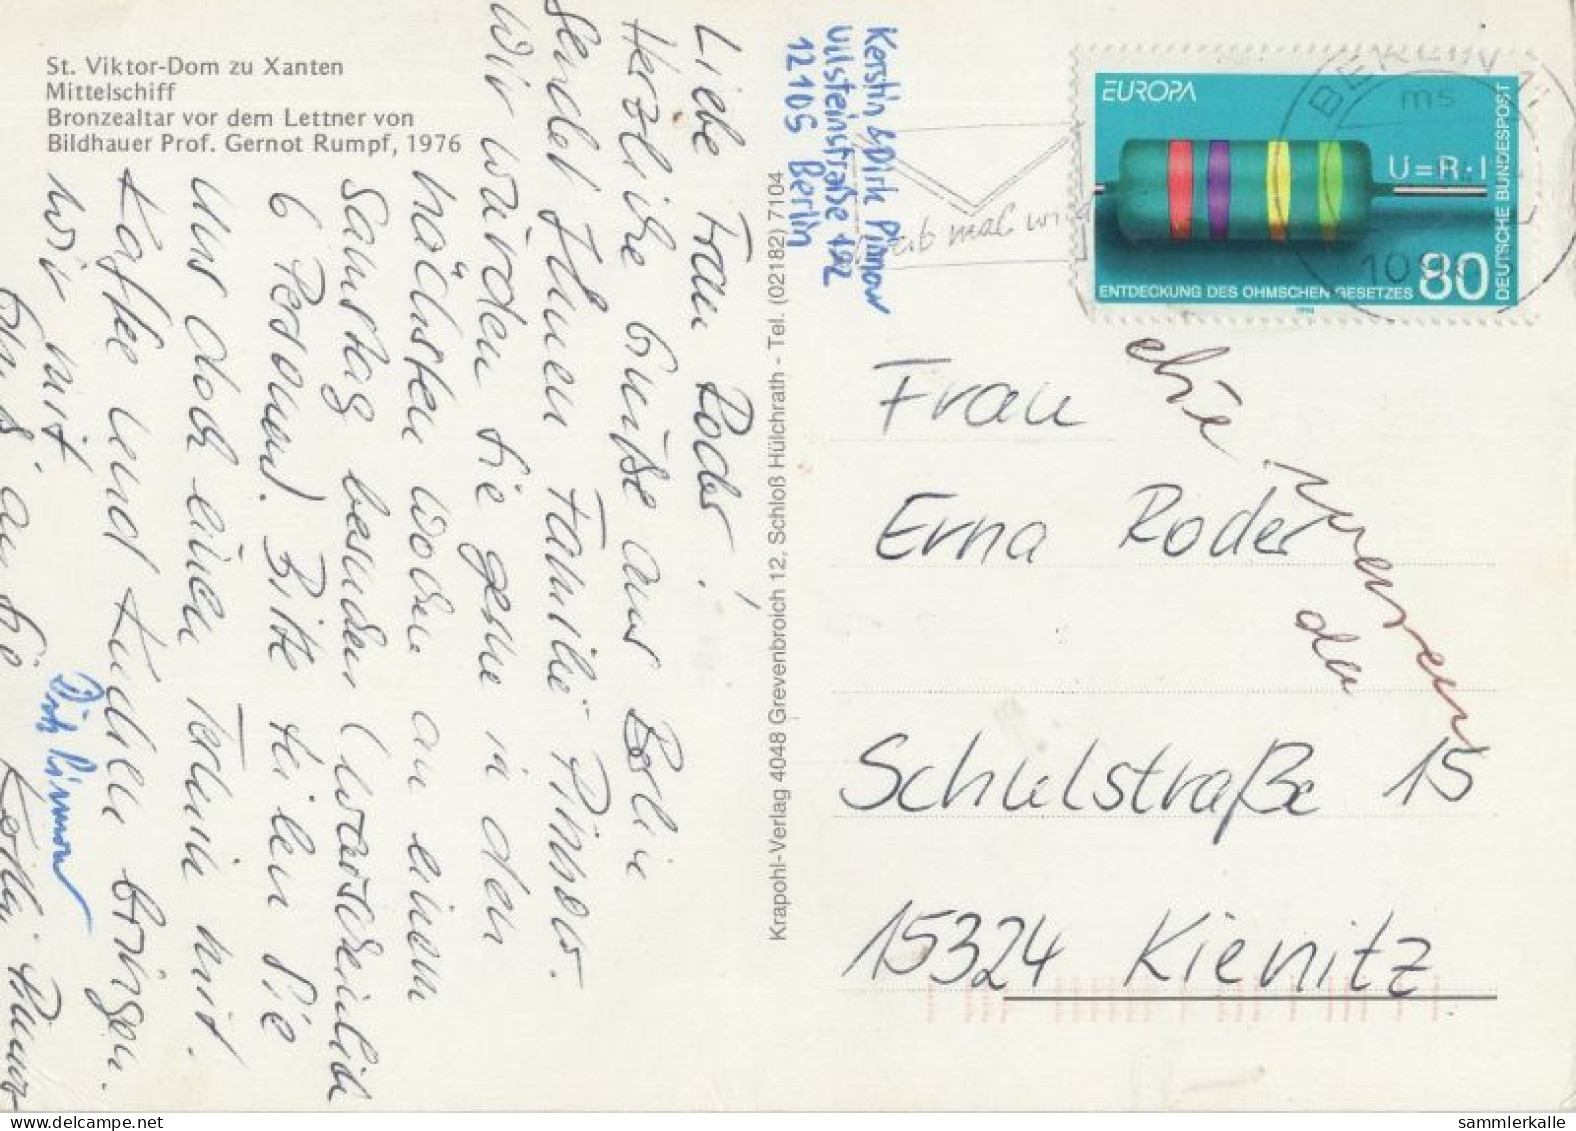 St. Viktor-Dom zu Xanten
Mittelschiff
Bronzealtar vor dem Lettner von
Bildhauer Prof. Gernot Rumpf, 1976
Liebe Frau Roder!
Herzliche Grüße aus Berlin
sendet Ihnen Familie Pinnow.
Wir würden Sie gerne in den
nächsten Wochen an einem
Samstag besuchen (warscheinlich
6 Personen). Bitte teilen Sie
uns doch einen Termin mit.
Kaffee und Kuchen bringen
wir mit.
Gruß an Sie
Dirk Pinnow
Krapohl-Verlag 4048 Grevenbroich 12, Schloß Hülchrath - Tel. (02182) 7104
Kerstin & Dirk Pinnow
Ullsteinstraße 192
12105 Berlin
EUROPA
U=R·I
ENTDECKUNG DES OHMSCHEN GESETZES
80
DEUTSCHE BUNDESPOST
1994
BERLIN
ms
mal
Frau
Erna Roder
Schulstraße 15
15324 Kienitz
sammlerkalle